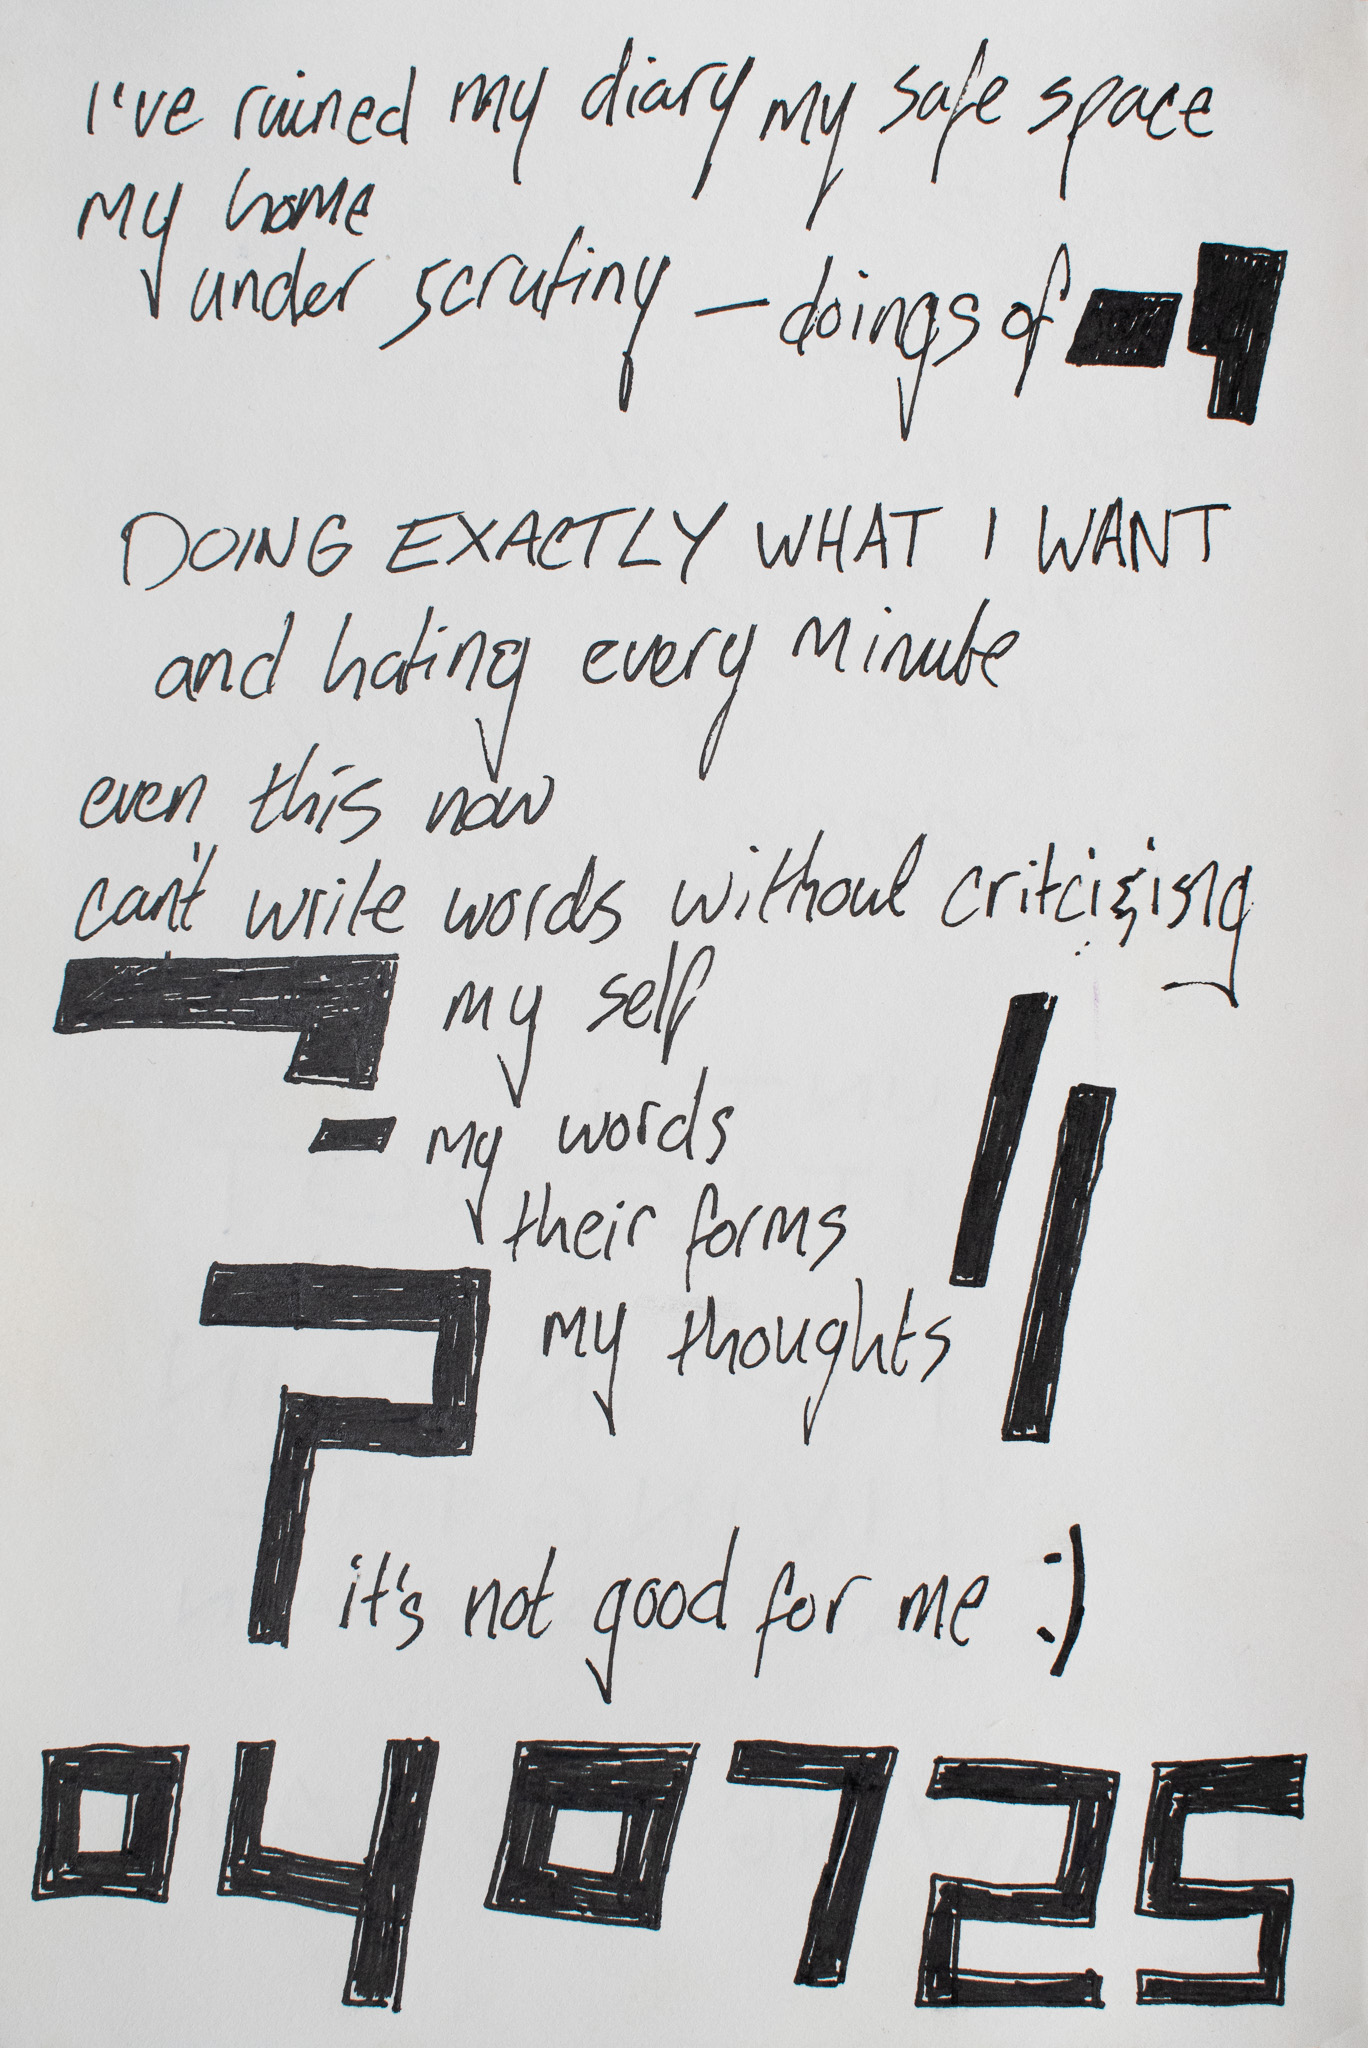 I've ruined my diary my safe space
my home
under scrutiny — doings of
DOING EXACTLY WHAT I WANT
and hating every minute
even this now
can't write words without critcizisng
my self
- my words
their forms
my thoughts
it's not good for me :)
040725